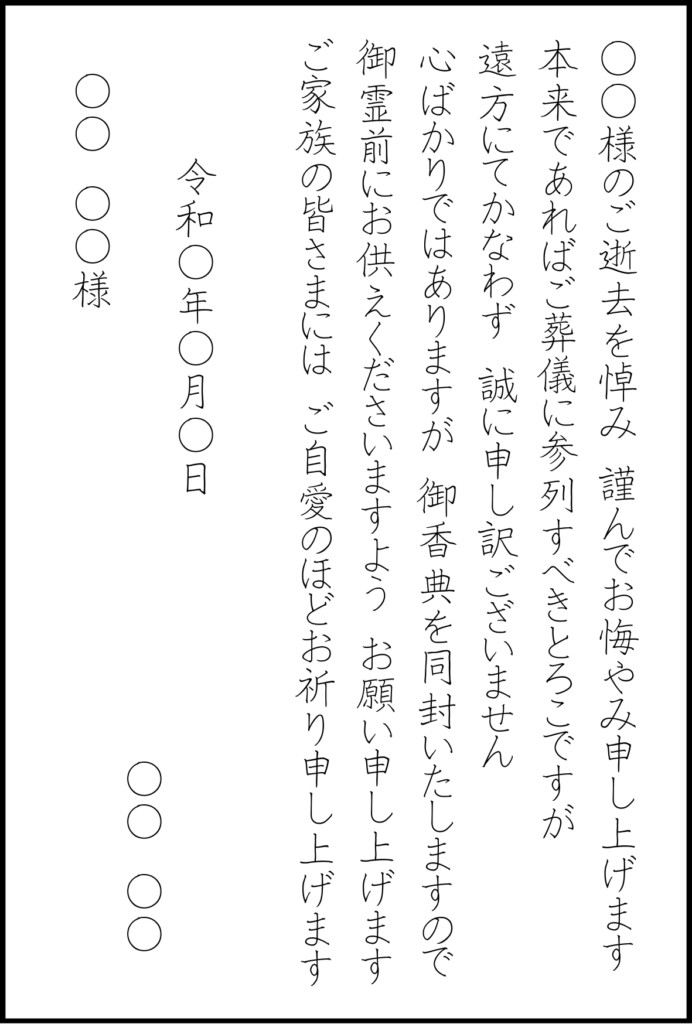 ○○様のご逝去を悼み　謹んでお悔やみ申し上げます
本来であればご葬儀に参列すべきとろこですが
遠方にてかなわず　誠に申し訳ございません
心ばかりではありますが　御香典を同封いたしますので
御霊前にお供えくださいますよう　お願い申し上げます
ご家族の皆さまには　ご自愛のほどお祈り申し上げます
令和○年○月○日
○○　○○
○○　○○様